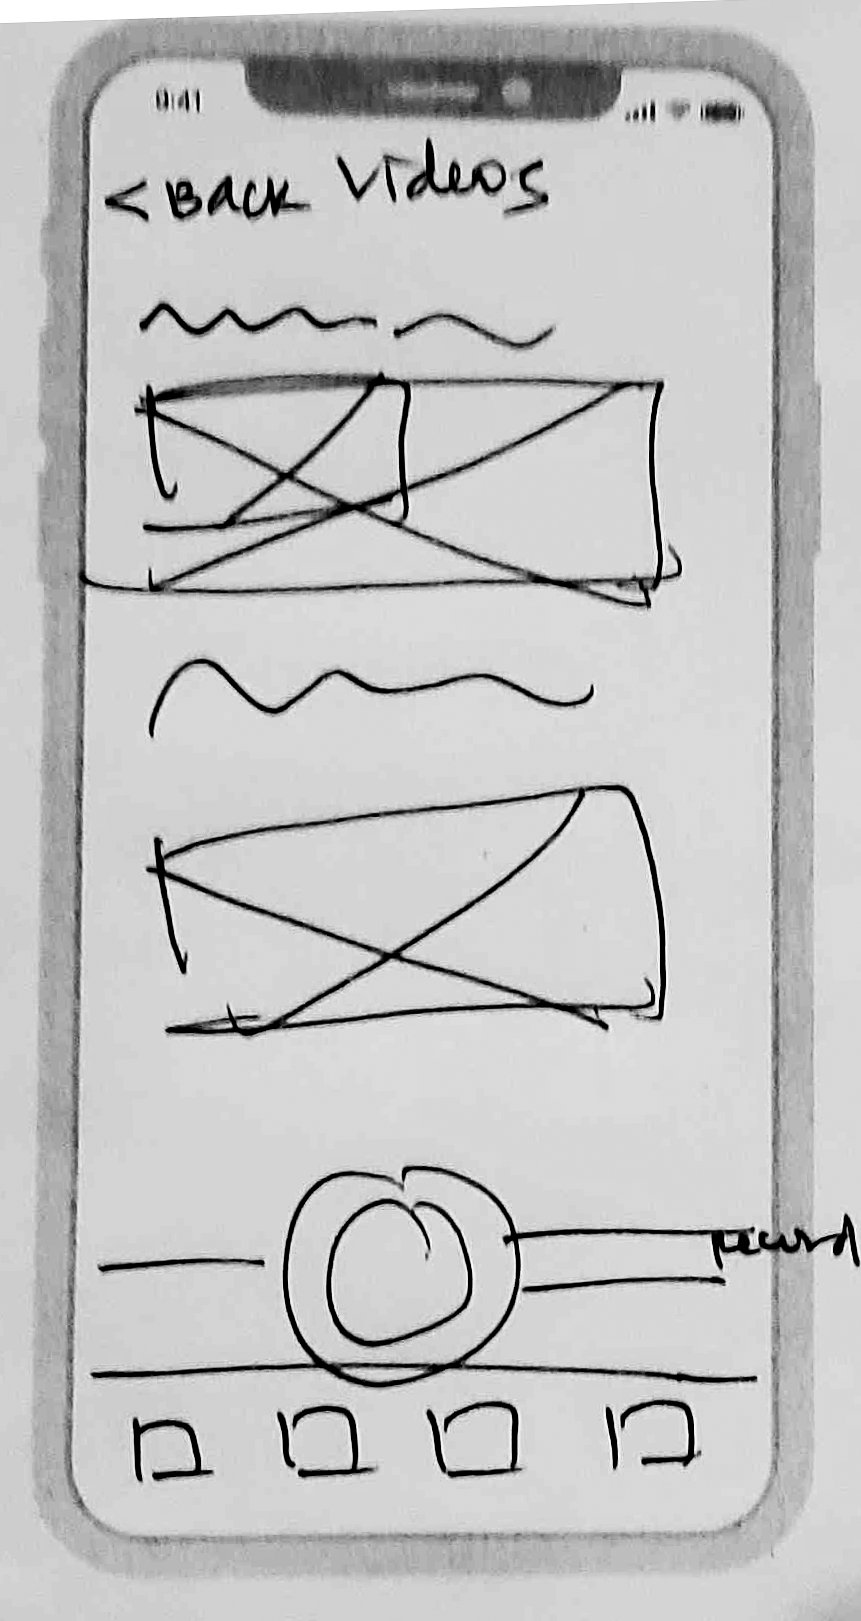 9:41
< Back Videos
record